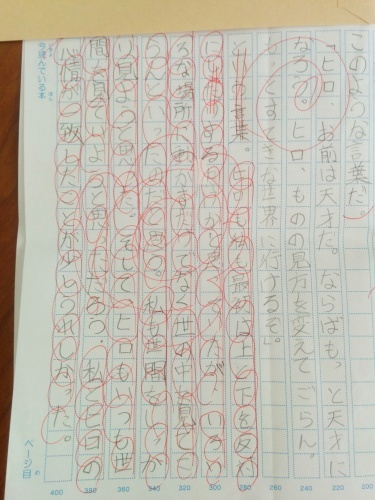 このような言葉だ。
「ヒロ、お前は天才だ。ならばもっと天才に
なろう。ヒロ、ものの見方を変えてごらん。
とすてきな世界に行けるぞ」。
という言葉。も始めは上と下を反
にするのかと思ってたが、いろい
ろな場所になく世の中を見てご
らんといったのだと思う。私も空間をしっか
り見ようと思った。そして、ヒロもいつも世
間を見ていようと思っただろう。私との
心情が一致したことが少しうれしかった。
200
220
240
260
280
300
320
340
360
380
400
今読んでいる本
ページ目